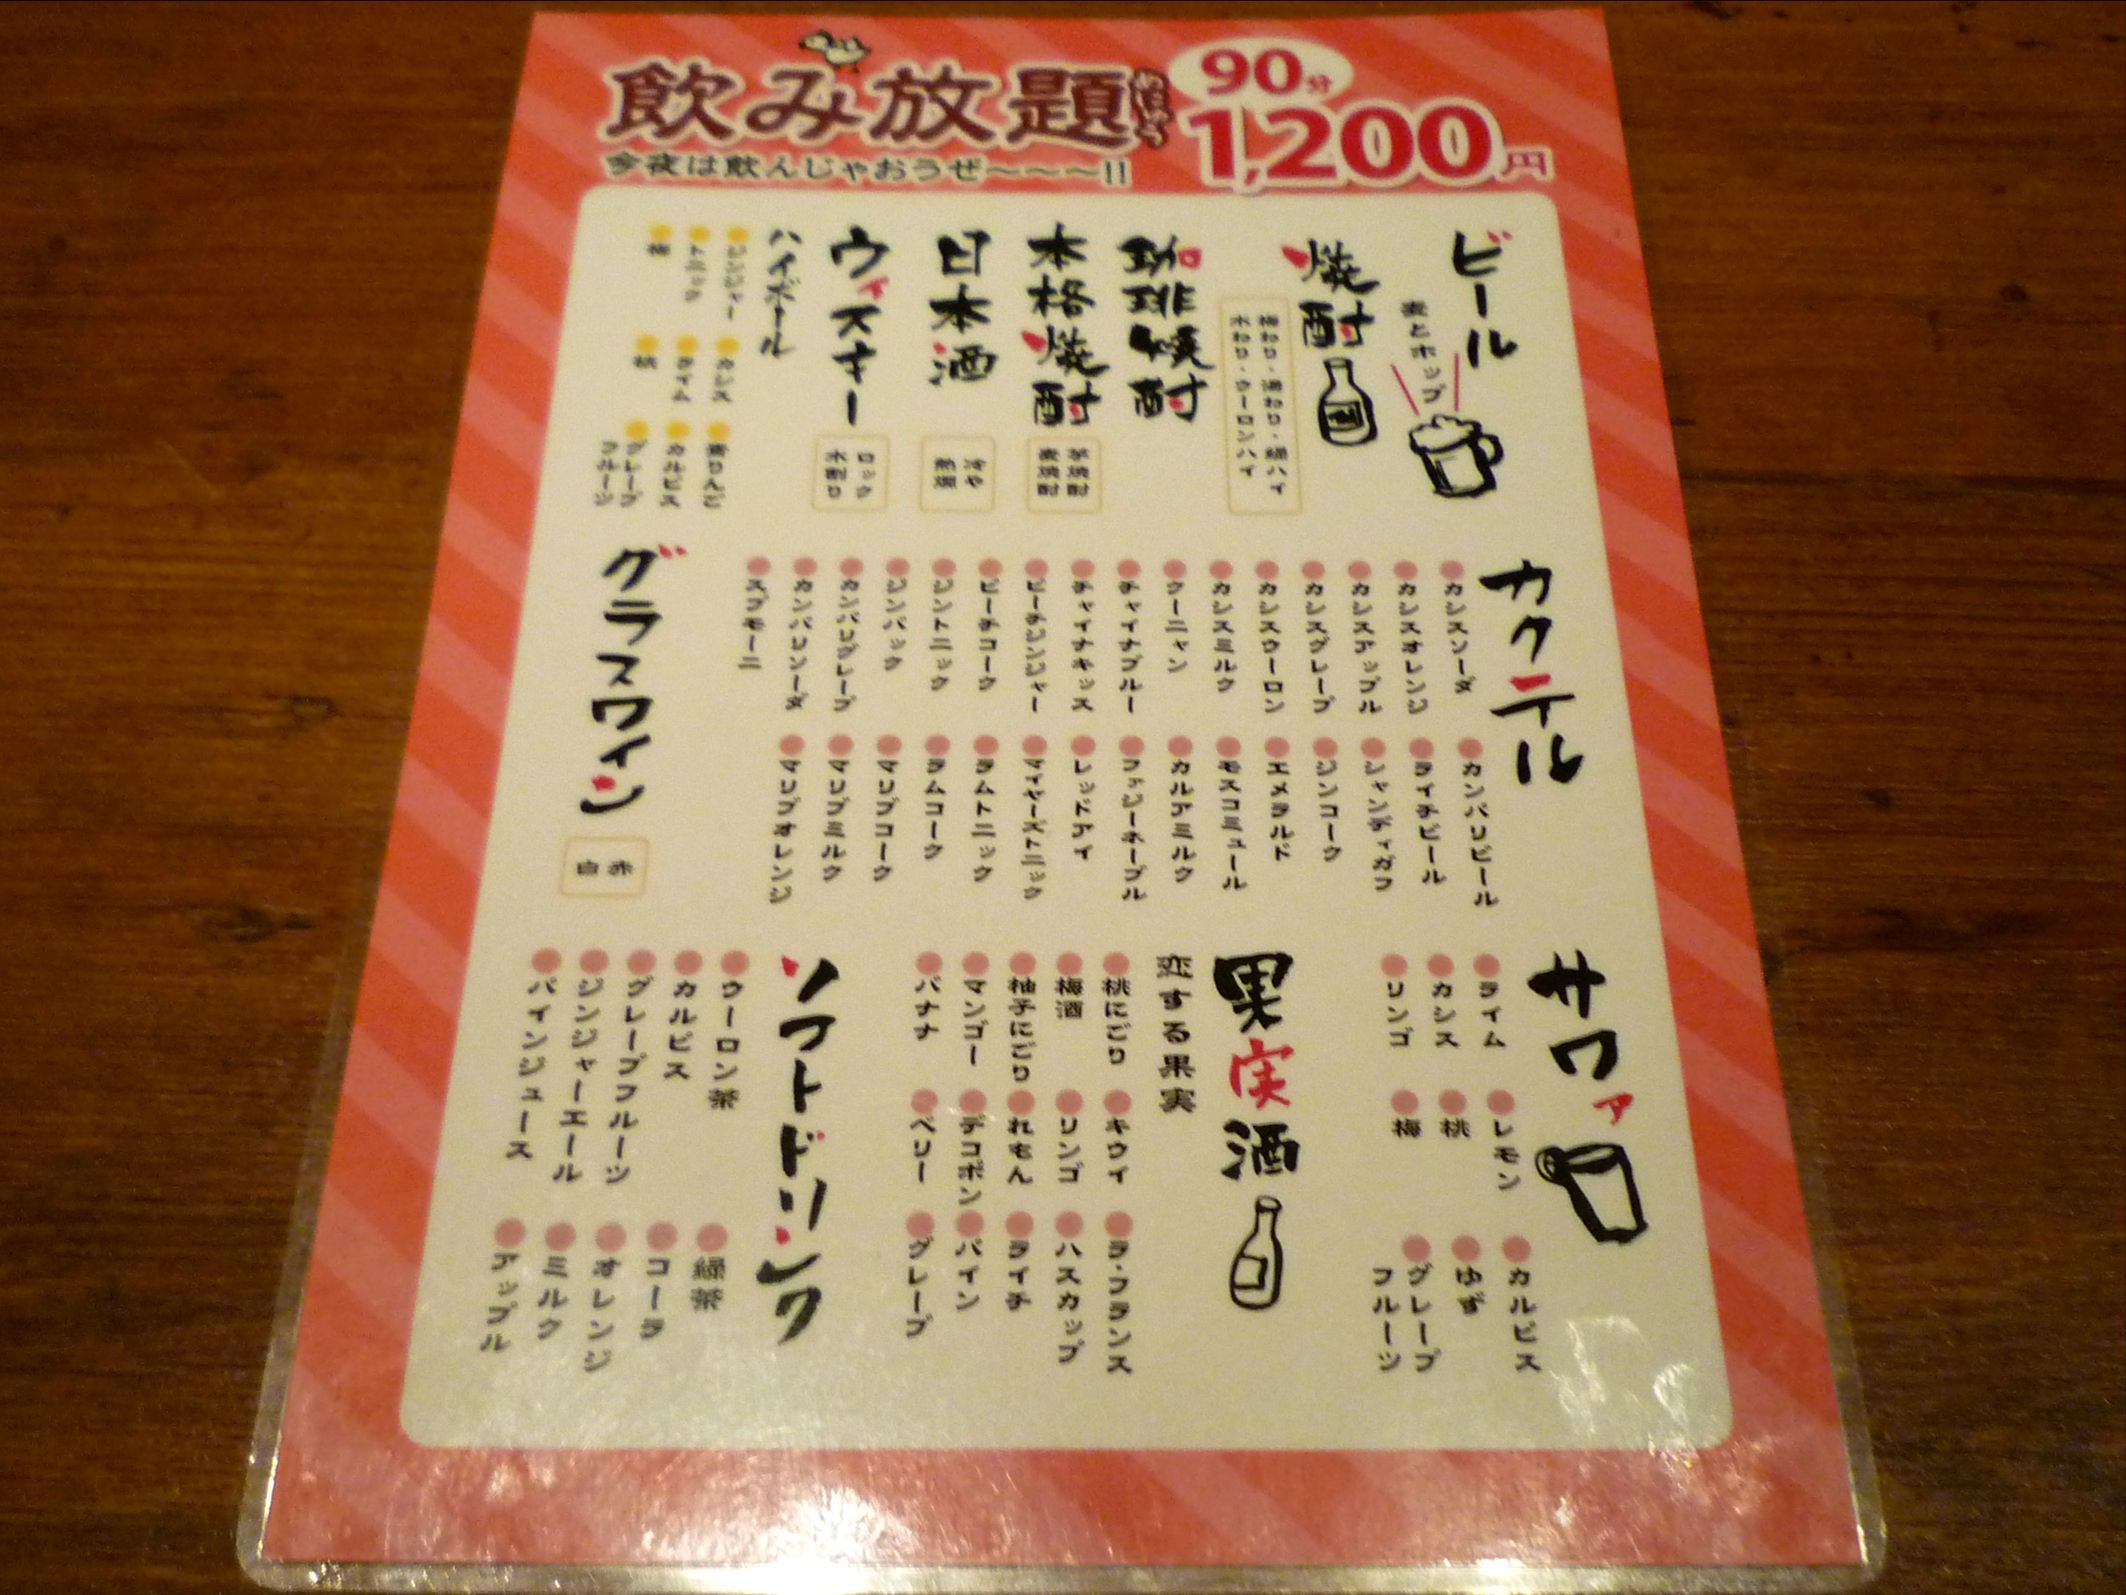 飲み放題
90分
1,200円
今夜は飲んじゃおうぜ〜〜〜!!
ビール
麦とホップ
焼酎
梅わり・湯わり・緑ハイ
水わり・ウーロンハイ
珈琲焼酎
本格焼酎
芋焼酎
麦焼酎
日本酒
冷や
熱燗
ウィスキー
ロック
水割り
ハイボール
ジンジャー
カシス
青りんご
トニック
ライム
カルピス
梅
桃
グレープフルーツ
カクテル
カシスソーダ
カシスオレンジ
カシスアップル
カシスグレープ
カシスウーロン
カシスミルク
クーニャン
チャイナブルー
チャイナキッス
ピーチジンジャー
ピーチコーク
ジントニック
ジンバック
カンパリグレープ
カンパリソーダ
スプモーニ
カンパリビール
ライチビール
シャンディガフ
ジンコーク
エメラルド
モスコミュール
カルアミルク
ファジーネーブル
レッドアイ
マイヤーズトニック
ラムトニック
ラムコーク
マリブコーク
マリブミルク
マリブオレンジ
グラスワイン
赤
白
サワァ
ライム
レモン
カルピス
カシス
桃
ゆず
リンゴ
梅
グレープフルーツ
果実酒
恋する果実
桃にごり
キウイ
ラ・フランス
梅酒
リンゴ
ハスカップ
柚子にごり
れもん
ライチ
マンゴー
デコポン
パイン
バナナ
ベリー
グレープ
ソフトドリンク
ウーロン茶
緑茶
カルピス
コーラ
グレープフルーツ
オレンジ
ジンジャーエール
ミルク
パインジュース
アップル